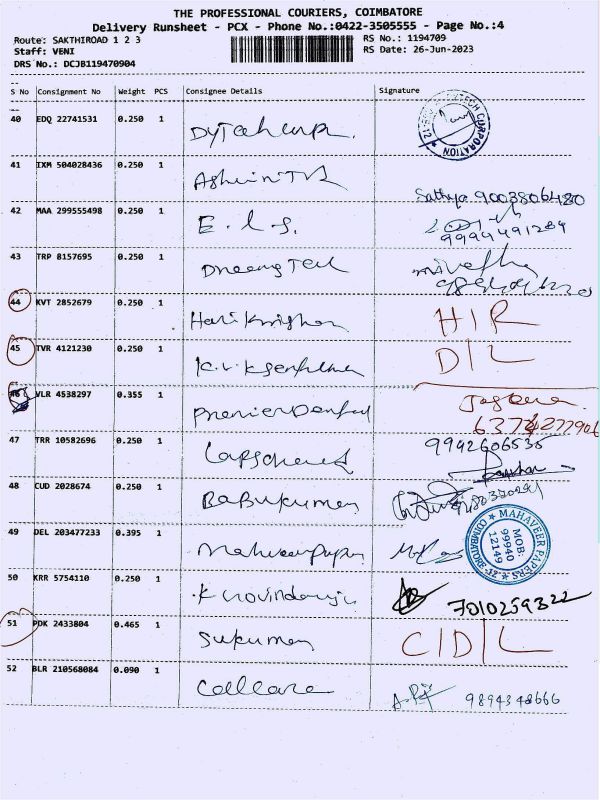 THE PROFESSIONAL COURIERS, COIMBATORE
Delivery Runsheet - PCX - Phone No.:0422-3505555 - Page No.:4
Route: SAKTHIROAD 1 2 3 RS No.: 1194709
Staff: VENI RS Date: 26-Jun-2023
DRS No.: DCJB119470904
S No Consignment No Weight PCS Consignee Details Signature
40 EDQ 22741531 0.250 1 CORPORATION
41 IXM 504028436 0.250 1 Ashwin TVS Sathya 9003806480
42 MAA 299555498 0.250 1 E. l s. 9994491284
43 TRP 8157695 0.250 1
44 KVT 2852679 0.250 1 Hari Krishnan H|R
45 TVR 4121230 0.250 1 D|L
46 VLR 4538297 0.355 1 Premier Dental 6374277906
47 TRR 10582696 0.250 1 9942606535
48 CUD 2028674 0.250 1 Babukumar
49 DEL 203477233 0.395 1 Mahaveer papers MAHAVEER PAPERS MOB: 99940 12149 COIMBATORE-12
50 KRR 5754110 0.250 1 K Govindaraju 7010259322
51 PDK 2433804 0.465 1 Sukumar C|D|L
52 BLR 210568084 0.090 1 Cellcare 9894348666